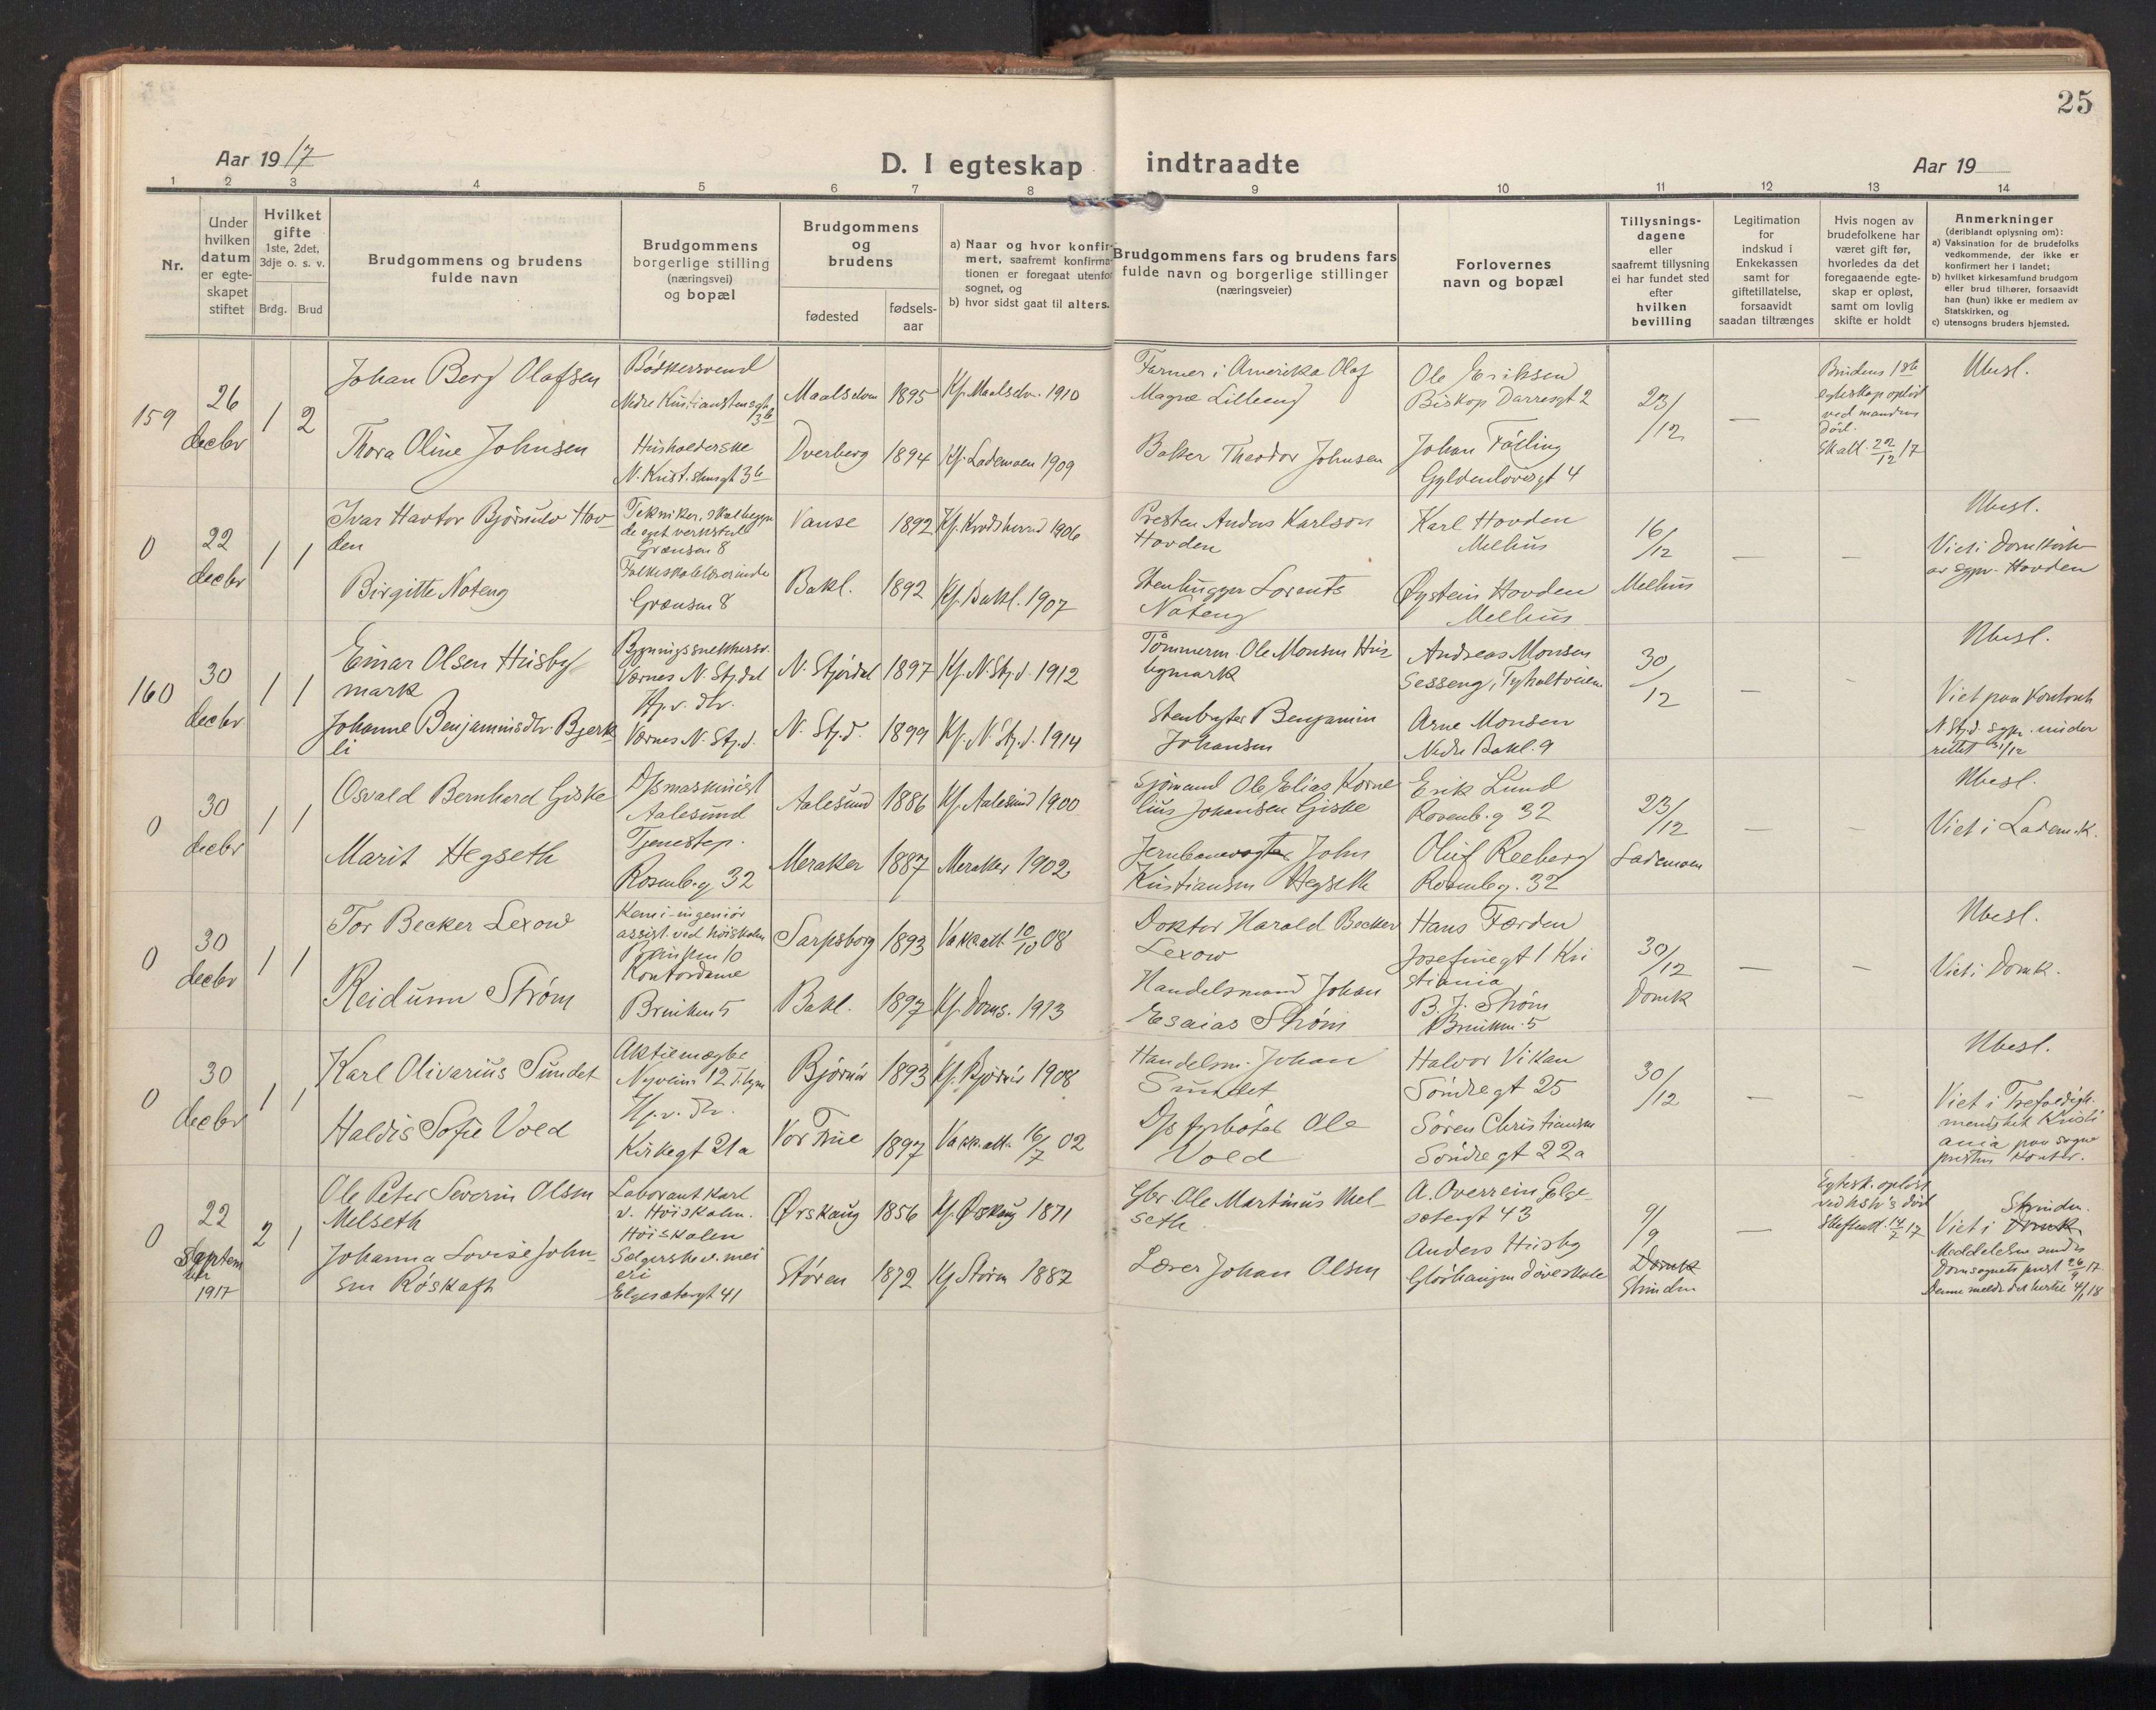 25
Aar 1917
D. I egteskap indtraadte
Aar 19
1 2 3 4 5 6 7 8 9 10 11 12 13 14
Nr.
Under
hvilken
datum
er egte-
skapet
stiftet
Hvilket
gifte
1ste, 2det,
3dje o. s. v.
Brdg. Brud
Brudgommens og brudens
fulde navn
Brudgommens
borgerlige stilling
(næringsvei)
og bopæl
Brudgommens
og
brudens
fødested
fødsels-
aar
a) Naar og hvor konfir-
mert, saafremt konfirma-
tionen er foregaat utenfor
sognet, og
b) hvor sidst gaat til alters.
Brudgommens fars og brudens fars
fulde navn og borgerlige stillinger
(næringsveier)
Forlovernes
navn og bopæl
Tillysnings-
dagene
eller
saafremt tillysning
ei har fundet sted
efter
hvilken
bevilling
Legitimation
for
indskud i
Enkekassen
samt for
giftetillatelse,
forsaavidt
saadan tiltrænges
Hvis nogen av
brudefolkene har
været gift før,
hvorledes da det
foregaaende egte-
skap er opløst,
samt om lovlig
skifte er holdt
Anmerkninger
(deriblandt oplysning om):
a) Vaksination for de brudefolks
vedkommende, der ikke er
konfirmert her i landet;
b) hvilket kirkesamfund brudgom
eller brud tilhører, forsaavidt
han (hun) ikke er medlem av
Statskirken, og
c) utensogns bruders hjemsted.
159
26
decbr
1 2
Johan Berg Olafsen
Thora Oline Johnsen
Bødkersvend
Nedre Kristianstensgt.
3b
Husholderske
N. Krist.stensgt 3b
Maalselven 1895 Kf. Maalselv. 1910
Dverberg 1894 Kf. Lademoen 1909
Farmer i Amerika Olaf
Magnæ Lilleeng
Baker Theodor Johnsen
Ole Eriksen
Biskop Darresgt 2
Johan Følling
Gyldenløvesgt 4
23/12
—
Brudens 1ste
egteskap opløst
ved mandens
død.
Sk.att. 22/12 17
Ubesl.
0
22
decbr
1 1
Ivar Havtor Bjørnulv Hov-
den
Birgitte Noteng
Tekniker,
de eget verksted
Grænsen 8
Folkeskolelærerinde
Grænsen 8
Vanse 1892 Kf. Krødsherred 1906
Bakl. 1892 Kf. Bakl. 1907
Presten Anders Karlson
Hovden
Stenhugger Lorents
Noteng
Karl Hovden
Melhus
Øystein Hovden
Melhus
16/12
Melhus
— —
Ubesl.
Viet i Domkirken
av sgpr. Hovden
160
30
decbr
1 1
Einar Olsen Husby-
mark
Johanne Benjaminsdtr. Bjerk-
li
Bygningssnekkersv.
Værnes N. Stj.dal
Hj.v. dtr.
Værnes N. Stj.d.
N. Stjørdal 1897 Kf. N. Stj.d. 1912
N. Stj.d. 1899 Kf. N. Stj.d. 1914
Tømmerm. Ole Monsen Hus-
bymark
Stenbryter Benjamin
Johansen
Andreas Monsen
Sesseng, Tyholtveien
Arne Monsen
Nedre Bakl. 9
30/12
— —
Ubesl.
Viet paa Kontoret
N. Stj.d. sgpr. under
rettet 31/12
0
30
decbr
1 1
Osvald Bernhard Giske
Marit Hegseth
D/s maskinist
Aalesund
Tjenestep.
Rosenb.g 32
Aalesund 1886 Kf. Aalesund 1900
Meraker 1887 Meraker 1902
Sjømand Ole Elias Korne
lius Johansen Giske
Jernbanevogter John
Kristiansen Hegseth
Erik Lund
Rosenb.g 32
Oluf Reeberg
Rosenb.g. 32
23/12
Lademoen
— —
Ubesl.
Viet i Ladem.k.
0
30
decbr
1 1
Tor Becker Lexow
Reidunn Strøm
Kemi-ingeniør
assist. ved høiskolen
Brinken 10
Kontordame
Brinken 5
Sarpsborg 1893 Vakc.att. 10/10 08
Bakl. 1897 Kf. Doms. 1913
Doktor Harald Becker
Lexow
Handelsmand Johan
Esaias Strøm
Hans Færden
Josefinegt 1 Kri
stiania
B. J. Strøm
Brinken 5
30/12
Domk
— —
Ubesl.
Viet i Domk.
0
30
decbr
1 1
Karl Olivarius Sundet
Haldis Sofie Vold
Aktiemægler
Nyveien 12
Hj.v. dtr.
Kirkegt 21a
Bjørnør 1893 Kf. Bjørnør 1908
Vor Frue 1897 Vakc.att. 16/7 02
Handelsm. Johan
Sundet
D/s fyrbøter Ole
Vold
Halvor Vikan
Søndregt 25
Søren Christiansen
Søndregt 22a
30/12
— —
Ubesl.
Viet i Trefoldigh.
menighet Kristi
ania paa sogne
prestens Kontor.
0
22
Septem
ber
1917
2 1
Ole Peter Severin Olsen
Melseth
Johanna Lovise John-
sen Røskaft
Laborant Karl
v. Høiskolen.
Høiskolen
Sælgerske v. mei
eri
Elgesætergt 41
Ørskaug 1856 Kf. Ørskaug 1871
Støren 1872 Kf Støren 1887
Gbr. Ole Martinus Mel-
seth
Lærer Johan Olsen
A. Overrein Elge-
sætergt 43
Anders Husby
Gløshaugen døveskole
9/9
Domk
Strinden
—
Egtesk. opløst
ved hustr's død
Skifteatt. 14/2 17
Strinden.
Viet i Domk
Meddelelse sendt
Domsognets prest 26/9 17.
Denne meldt det hertil 4/1 18